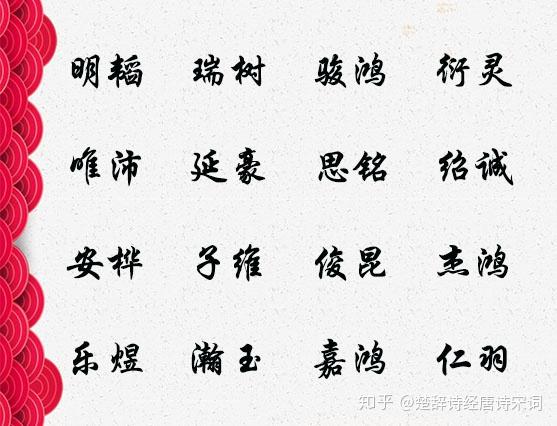 明韬 瑞树 骏鸿 衍灵
唯沛 延豪 思铭 绍诚
安桦 子维 俊昆 杰鸿
乐煜 瀚玉 嘉鸿 仁羽
知乎 @楚辞诗经唐诗宋词